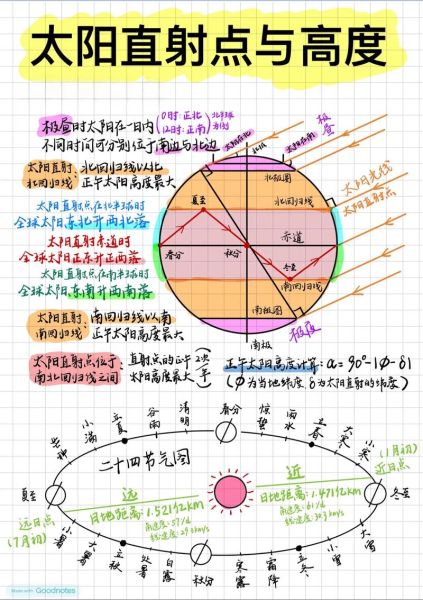 太阳直射点与高度
极昼时太阳在一日内(0时:正北 12时:正南)北半球为例
不同时间可分别位于南边与北边
太阳直射北回归线:北回归线以北正午太阳高度最大
太阳直射点在北半球时
全球太阳东北升西北落
太阳直射赤道时
全球太阳正东升正西落
太阳直射点在南半球时
全球太阳东南升西南落
太阳直射南回归线:南回归线以南正午太阳高度最大
太阳直射点位于南北回归线之间:直射点的正午太阳高度最大(2次/年)
太阳在北
北极
太阳在南
极昼
北极圈
太阳光线
太阳直射点
夏至
北回归线
赤道
春分
秋分
冬至
南回归线
南极圈
极夜
南极
正午太阳高度计算:α=90°-|Φ-δ|
(Φ为当地纬度 δ为太阳直射的纬度)
二十四节气图
芒种
小满
立夏
谷雨
清明
春分
惊蛰
雨水
立春
大寒
小寒
(1月初)
近日点
冬至
大雪
小雪
立冬
霜降
寒露
秋分
白露
处暑
立秋
大暑
小暑
夏至
远日点
(7月初)
远
日地距离:1.521亿km
角速度:57'/d
线速度:29.3km/s
近
日地距离:1.471亿km
角速度:61'/d
线速度:30.3km/s
Made with Goodnotes